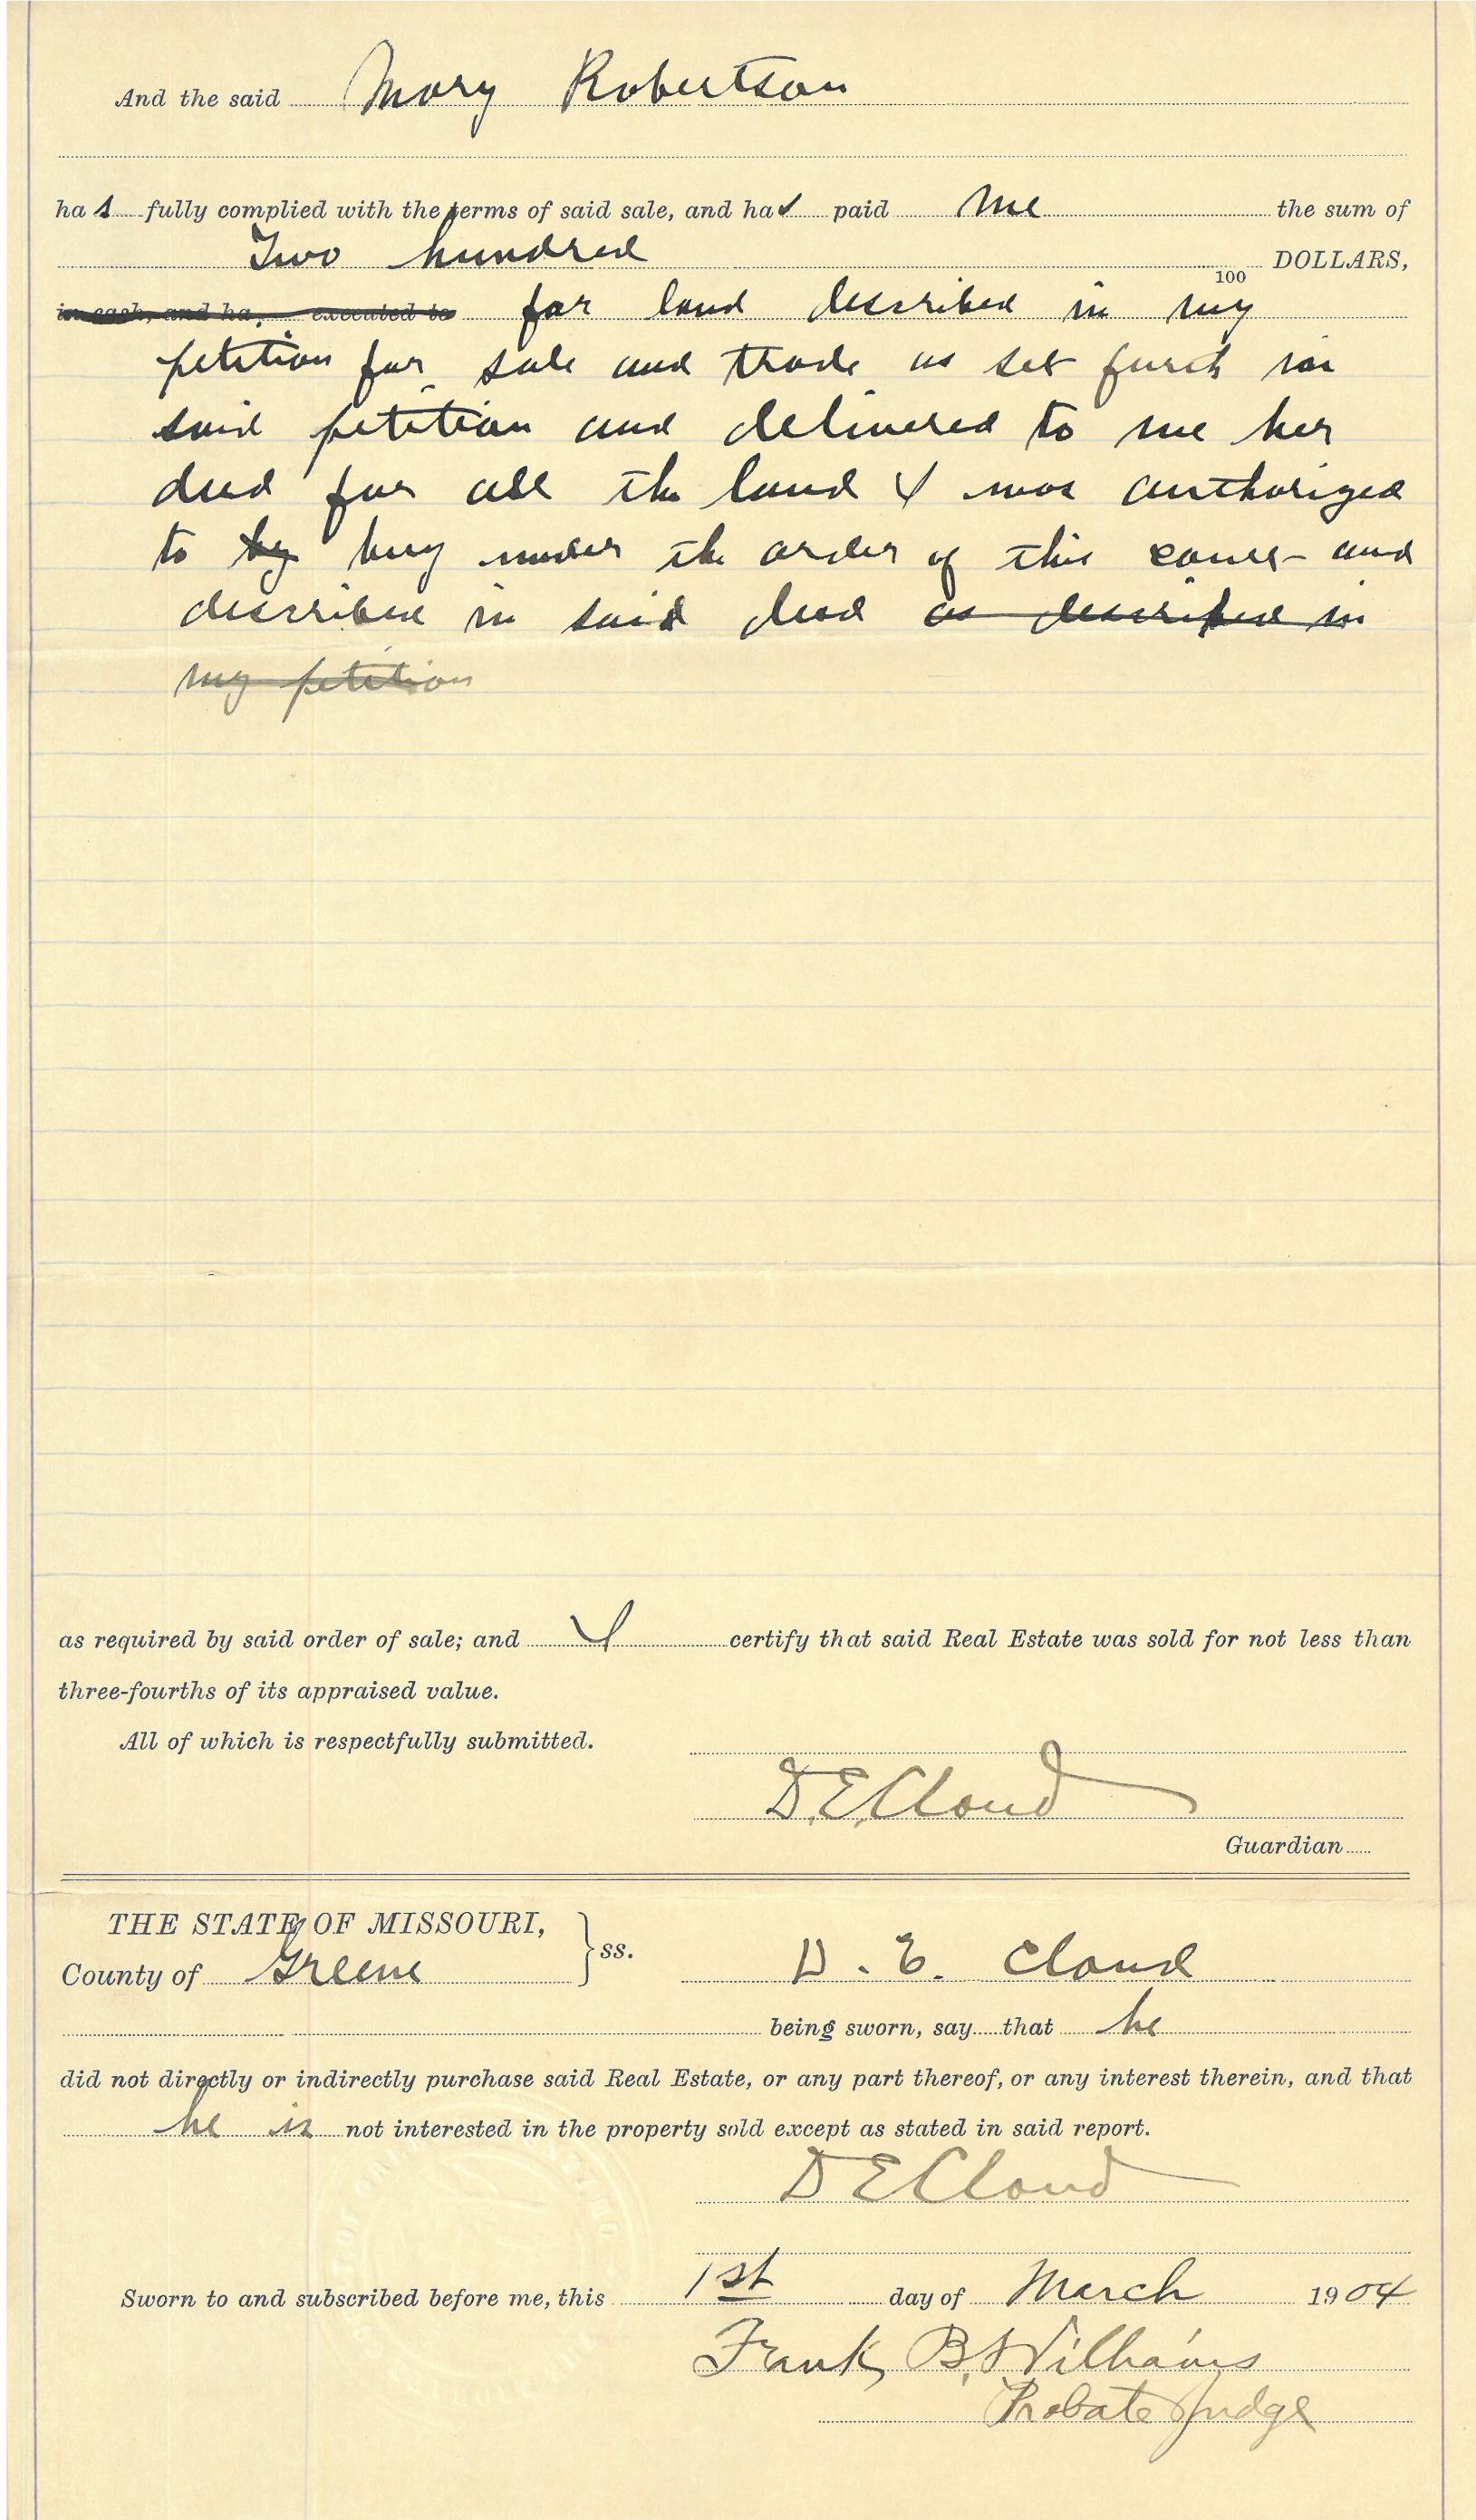 And the said Mary Robertson
has fully complied with the terms of said sale, and has paid me the sum of
Two hundred 100 DOLLARS,
in cash, and ha, executed to for land described in my
petition for sale and trade as set forth in
said petition and delivered to me her
deed for all the land I was authorized
to by buy under the order of this court and
described in said deed as described in
my petition
as required by said order of sale; and I certify that said Real Estate was sold for not less than
three-fourths of its appraised value.
All of which is respectfully submitted.
D. E. Cloud
Guardian
THE STATE OF MISSOURI,
County of Greene } ss. D. E. Cloud
being sworn, say that he
did not directly or indirectly purchase said Real Estate, or any part thereof, or any interest therein, and that
he is not interested in the property sold except as stated in said report.
D E Cloud
Sworn to and subscribed before me, this 1st day of March 1904
Frank B. Williams
Probate Judge